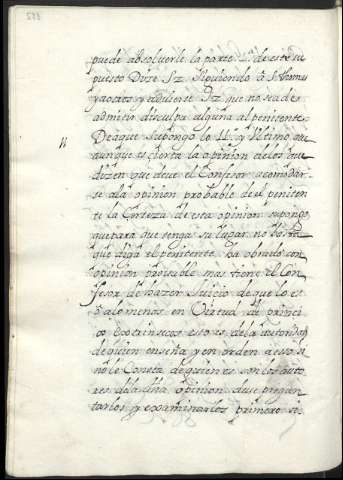 puede absolverle la parte 2. de este su
puesto Dize Sz siguiendo a S. Thomas
ya otros y ediuierte Iz que no se a de
admitir disculpa alguna al penitente
11 De aque supongo lo 11º y Vltimo que
aunque es çierta la opinion de los que
dizen que deue el Confesor acomodar
se ala opinion probable del peniten
te la Certeza de esta opinion supongo
quitara que tenga su lugar no basta
que diga el penitente ha obrado con
opinion prouable mas tiene el Con
fesor de hazer Juicio de que lo es
o alomenos en Virtud de princi
pio extrinseco esto es dela autoridad
de quien enseña y en orden a esso si
no le Consta de quienes son los auto
res dela dha opinion deue pregun
tarlos y examinarlos primero si